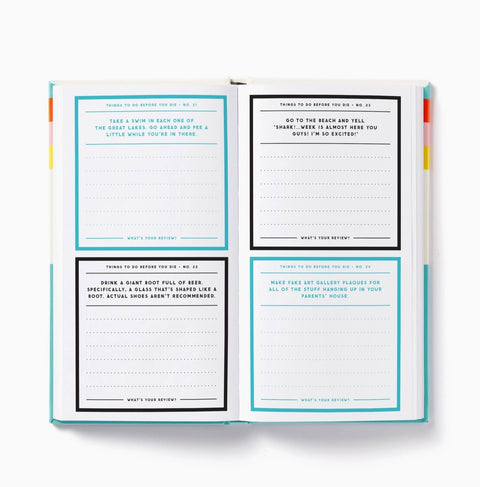 THINGS TO DO BEFORE YOU DIE • NO. 21
TAKE A SWIM IN EACH ONE OF
THE GREAT LAKES. GO AHEAD AND PEE A
LITTLE WHILE YOU'RE IN THERE.
WHAT'S YOUR REVIEW?
THINGS TO DO BEFORE YOU DIE • NO. 22
DRINK A GIANT BOOT FULL OF BEER.
SPECIFICALLY, A GLASS THAT'S SHAPED LIKE A
BOOT. ACTUAL SHOES AREN'T RECOMMENDED.
WHAT'S YOUR REVIEW?
THINGS TO DO BEFORE YOU DIE • NO. 23
GO TO THE BEACH AND YELL
"SHARK!...WEEK IS ALMOST HERE YOU
GUYS! I'M SO EXCITED!"
WHAT'S YOUR REVIEW?
THINGS TO DO BEFORE YOU DIE • NO. 24
MAKE FAKE ART GALLERY PLAQUES FOR
ALL OF THE STUFF HANGING UP IN YOUR
PARENTS' HOUSE.
WHAT'S YOUR REVIEW?